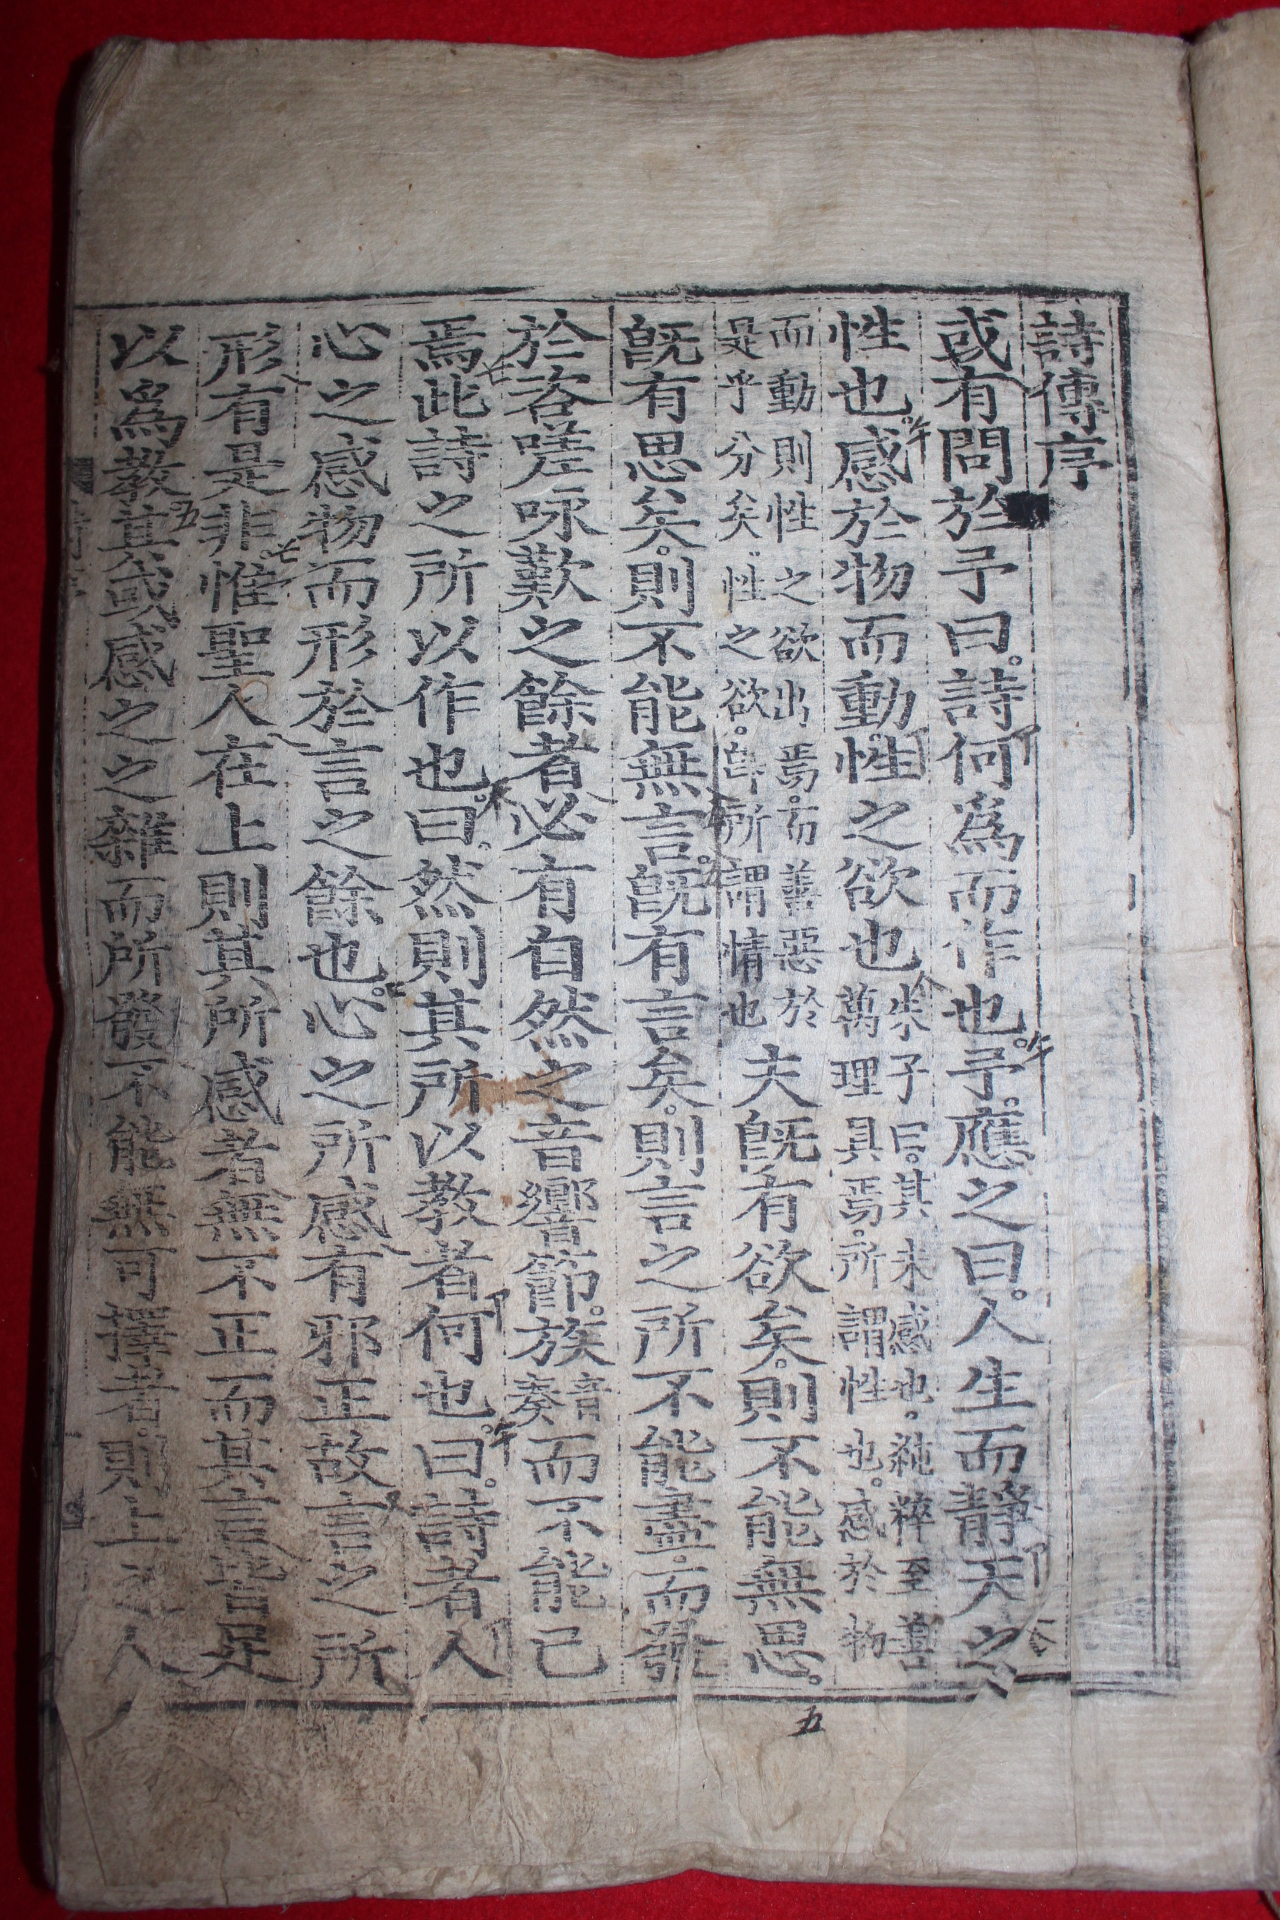 詩傳序
或有問於予曰詩何爲而作也予應之曰人生而靜天之
性也感於物而動性之欲也
朱子曰其未感也純粹至善
萬理具焉所謂性也感於物
而動則性之欲出焉而善惡於
是乎分矣性之欲卽所謂情也
夫旣有欲矣則不能無思
旣有思矣則不能無言旣有言矣則言之所不能盡而發
於咨嗟咏歎之餘者必有自然之音響節族
音
奏
而不能已
焉此詩之所以作也曰然則其所以敎者何也曰詩者人
心之感物而形於言之餘也心之所感有邪正故言之所
形有是非惟聖人在上則其所感者無不正而其言皆足
以爲敎其或感之之雜而所發不能無可擇者則上之人
五